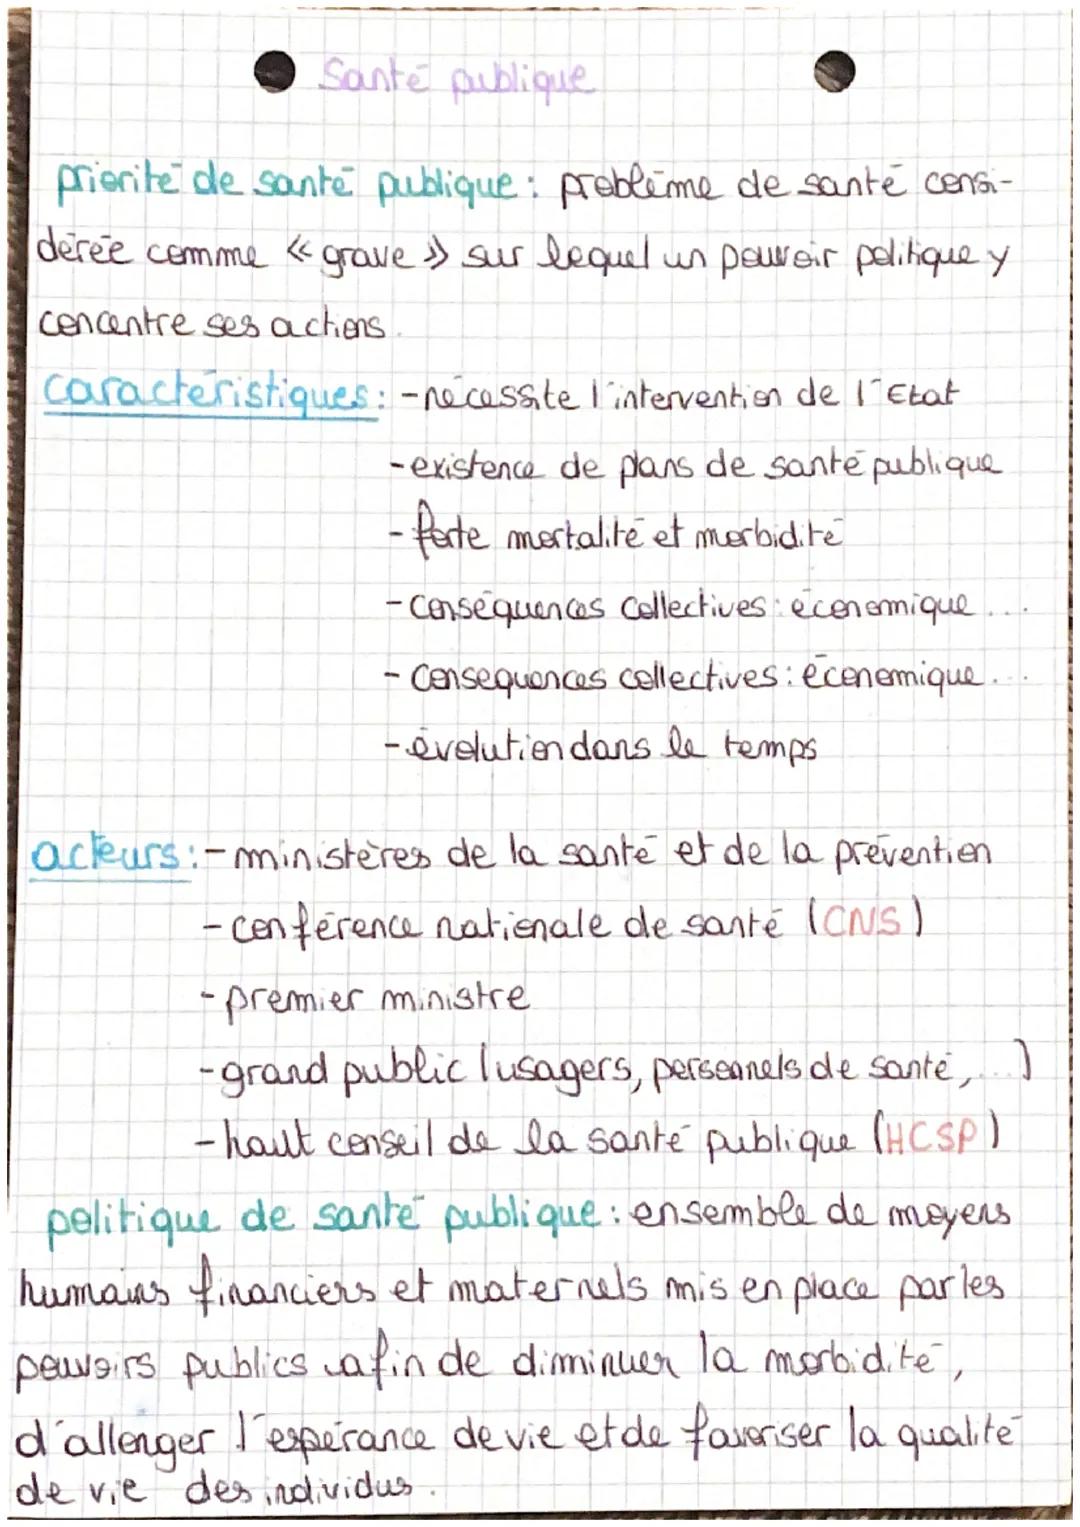 Santé publique
priorité de santé publique : problème de santé consi-
dérée comme « grave » sur lequel un pouvoir politique y
concentre ses actions.
caractéristiques : - nécessite l'intervention de l'Etat
- existence de plans de santé publique
- forte mortalité et morbidité
- conséquences collectives : économique ...
- consequences collectives : économique ...
- évolution dans le temps
acteurs : - ministères de la santé et de la prévention
- conférence nationale de santé (CNS)
- premier ministre
- grand public (usagers, personnels de santé, ...)
- haut conseil de la santé publique (HCSP)
politique de santé publique : ensemble de moyens
humains financiers et maternels mis en place par les
pouvoirs publics afin de dimminuer la morbidité,
d'allonger l'espérance de vie et de favoriser la qualité
de vie des individus.